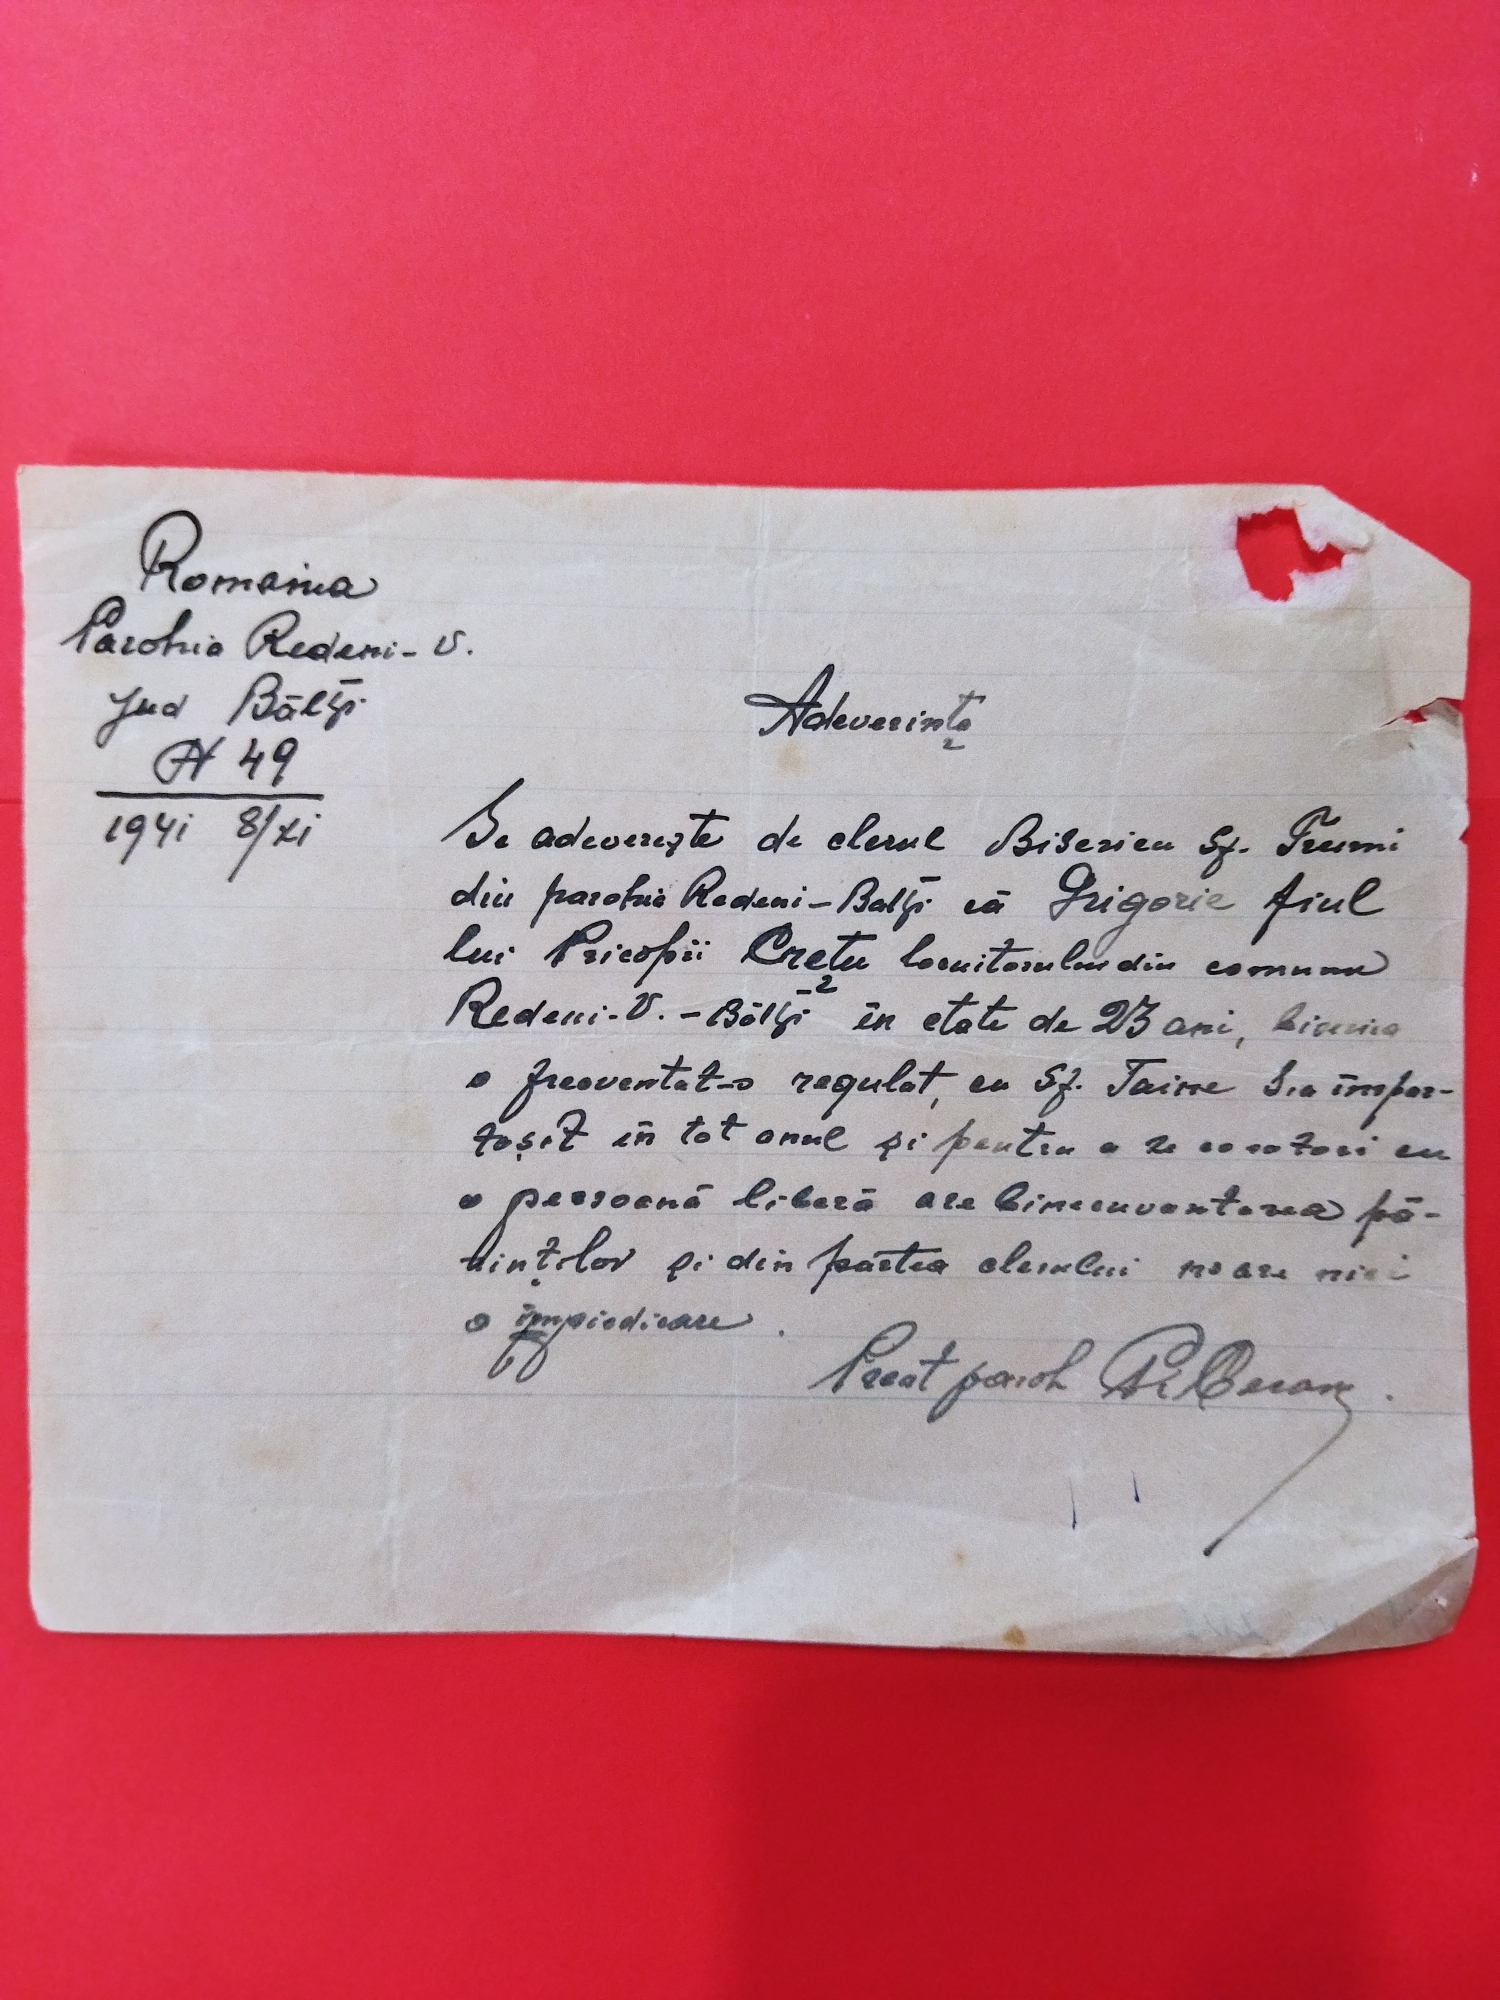 Romania
Parohia Redeni-V.
Jud Bălți
N 49
1941 8/XI
Adeverința
Se adeverește de clerul Bisericu Sf. Treimi
din parohia Redeni-Balți că Grigorie fiul
lui Pricopii Crețu locuitorului din comuna
Redeni-V.-Bălți în etate de 23 ani, biserica
o frecventat-o regulat, cu Sf. Taine s-a împar-
tașit în tot anul și pentru a se casatori cu
o persoană liberă are binecuvantarea pă-
rinților și din partea clerului nu are nici
o împiedicare.
Preot paroh